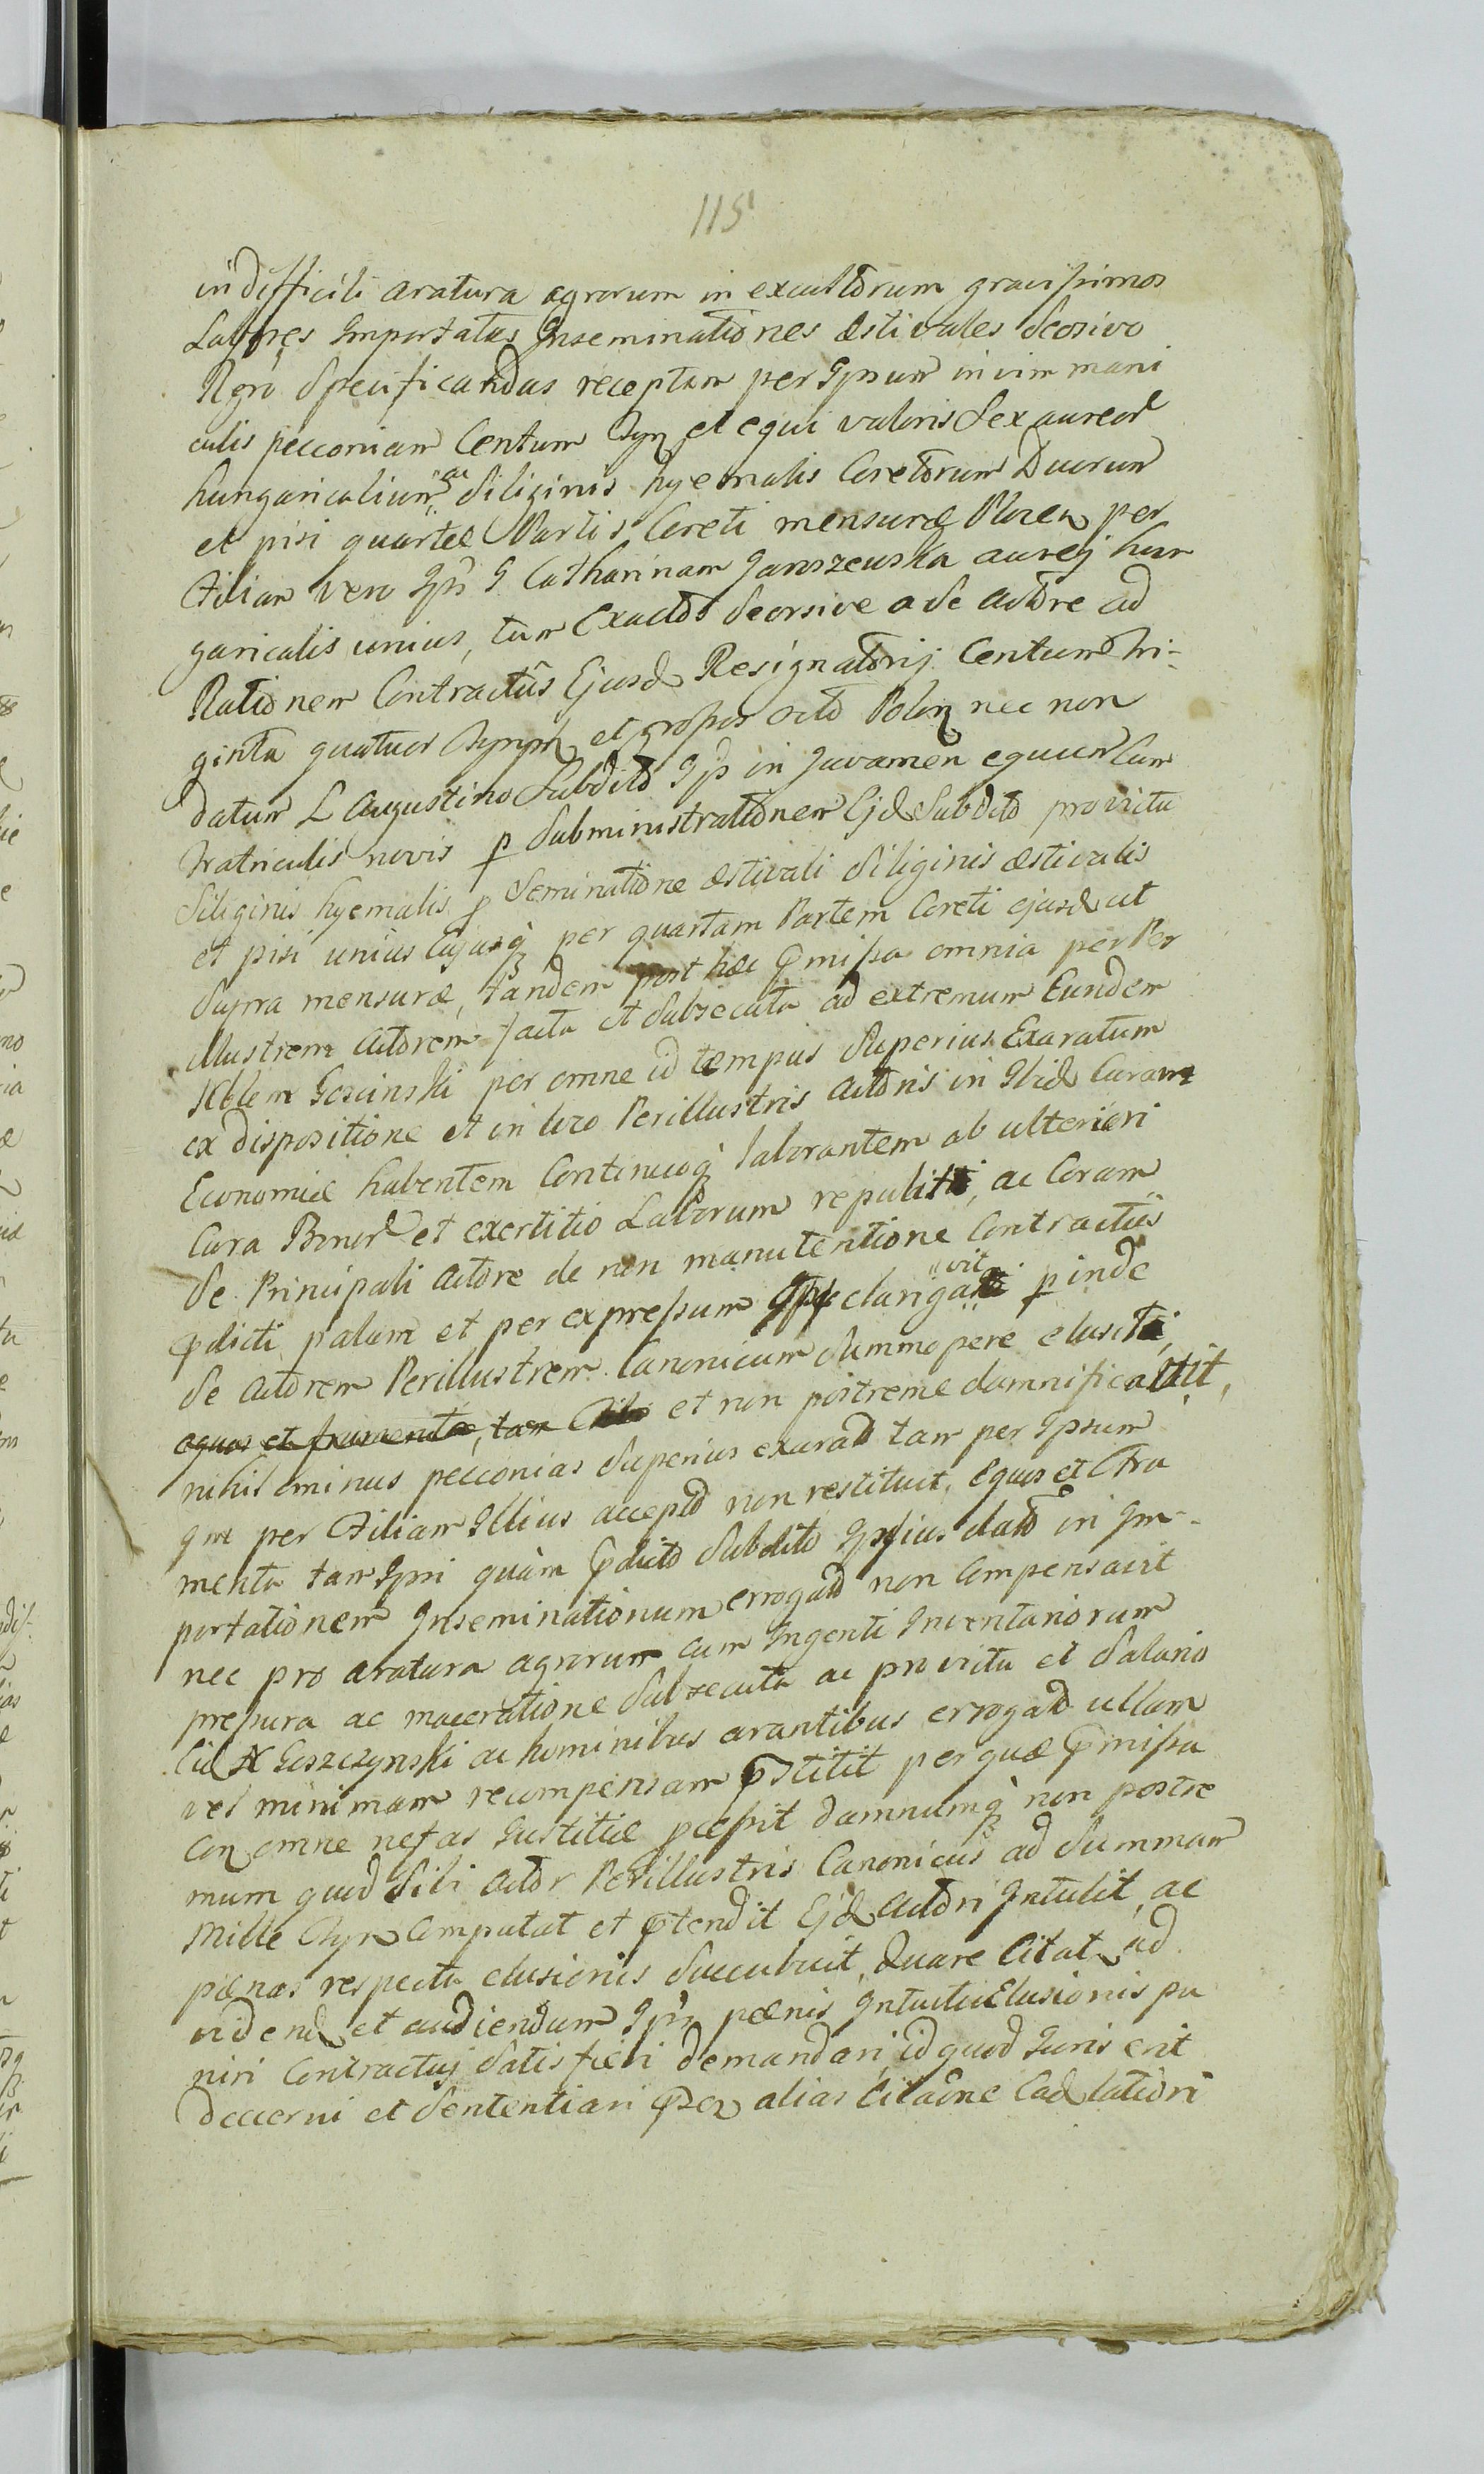 115
in difficili aratura agrorum in excultorum gravissimos
Labores Importatas Inseminationes Æstivales seorsivo
Rgro Specificandas receptam per Ipsum in vim mani
culis pecconiam Centum et equi valoris Sex aureor
hungaricalium ac Siliginis hyemalis Coretorum Duorum
et pisi quartæ Partis Coreti mensuræ per
Filiam vero Ips G Catharinam Janiszewska aurej hun
garicalis unius, tum Exactos seorsive a se actore ad
Rationem Contractûs Ejusd Resignatorij Centum tri-
ginta quatuor et grossos octo Polon nec non
datum L Augustino Subdito Ips in Juvamen equum cum
tratriculis novis p Subministrationem Ejd Subdito pro victu
Siliginis hyemalis p Seminatione æstivali Siliginis æstivalis
et pisi unius Cujusq per quartam Partem Coreti ejusd ut
Supra mensuræ, tandem post hæc pmissa omnia per Per
illustrem Actorem facta et Subsecuta ad extremum Eundem
Nblem Goscinski per omne id tempus Superius Exaratum
ex dispositione et in loco Perillustris Actoris in Ibid Curam
Economiæ habentem Continuoq laborantem ab ulteriori
Cura Bonor et exertitio Laborum repulit, ac Coram
Se Principali Actore de non manutentione Contractûs
pdicti palam et per expressum clarigavit p inde
Se Actorem Perillustrem Canonicum summopere elusit,
equos et frumenta, tam et non postreme damnificavit,
nihil ominus pecconias Superius exarad tam per Ipsum
qm per Filiam Illius accepto non restituit, Equos et Fru
menta tam Ipsi quàm pdicto Subdito Ipsius dato in Im-
portationem Inseminationum errogato non Compensavit
nec pro aratura agrorum cum Ingenti Inventariorum
pressura ac maceratione Subsecuta ac pro victu et Salario
Eid N Goszczynski ac hominibus arantibus errogato ullam
vel minimam recompensam pstitit per quæ pmissa
Con omne nefas Iustitiæ pcessit damnumq non postre
mum quod Sibi Actor Perillustris Canonicus ad Summam
Mille Computat et ptendit Ejd Actori Intulit, ac
pænas respectu elusionis Succubuit, Quare Citat ad
vidend et audiendum Ips pænis Intuitu Elusionis pu
niri Contractuj Satisfieri demandari, id quod Juris erit
decerni et Sententiari alias Citaõne Cad latiori